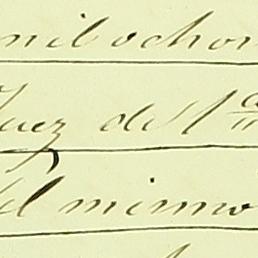 mil ochoc
Juez del 1ª
del mismo